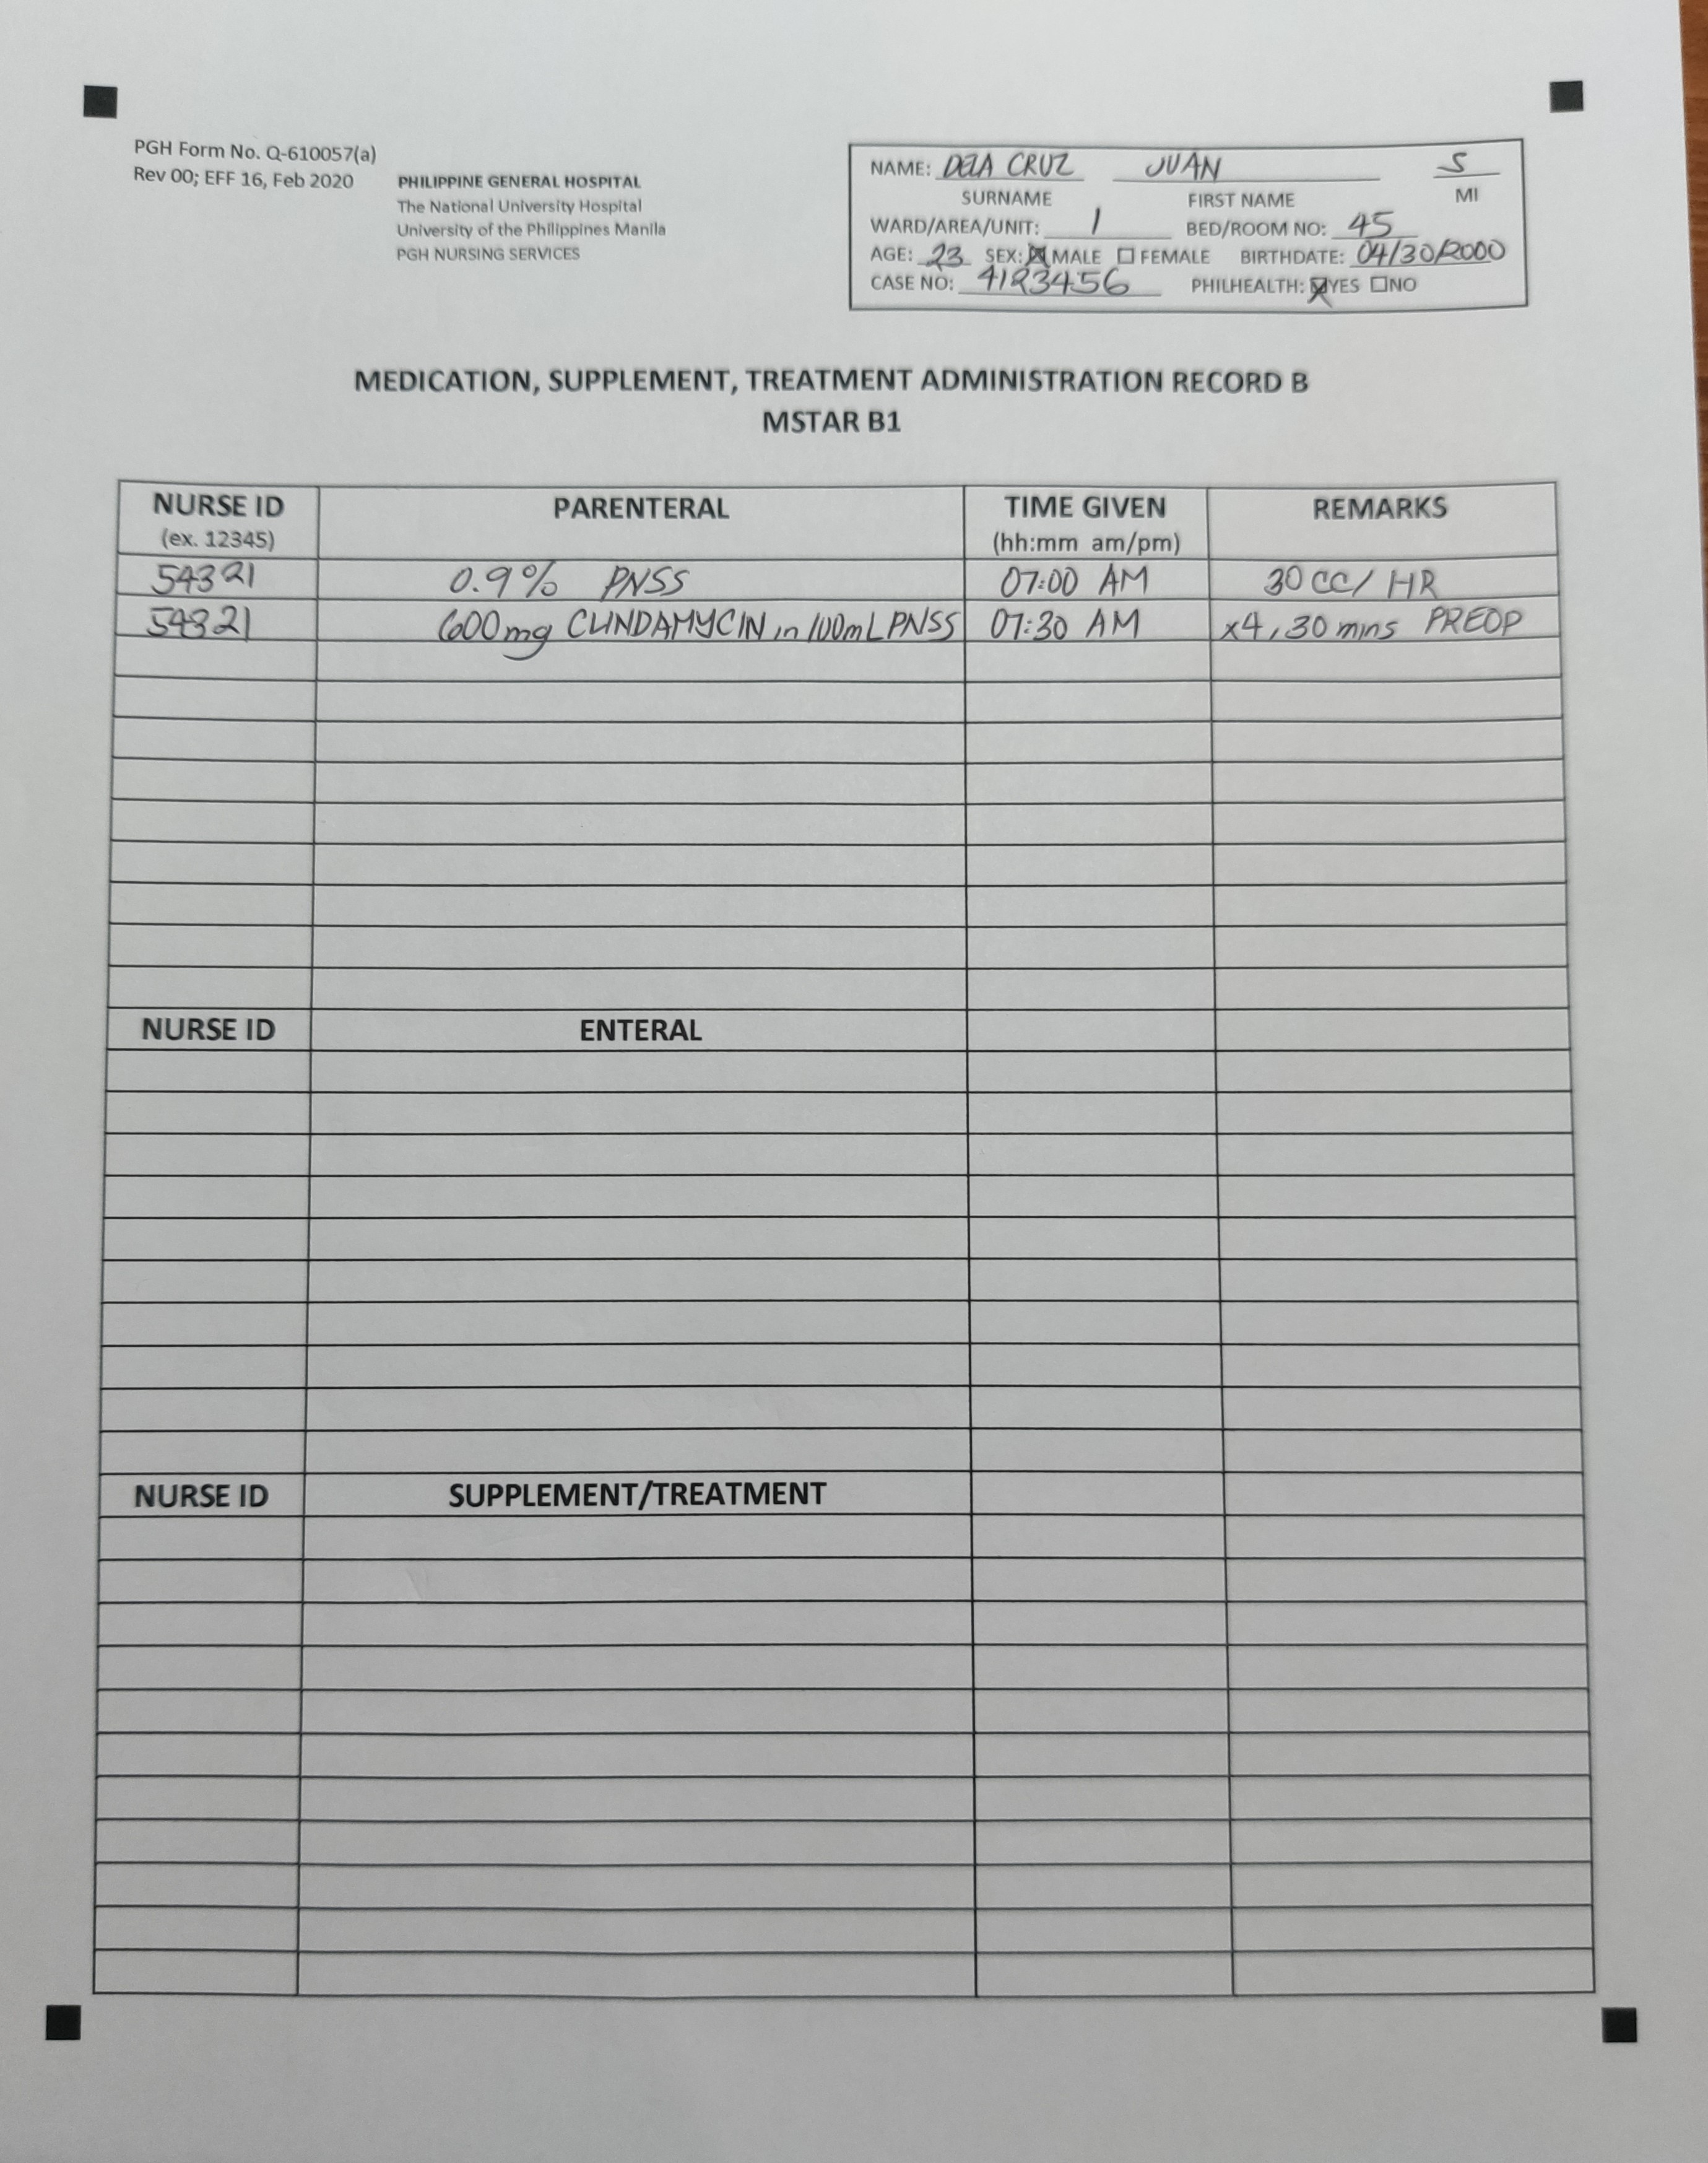 PGH Form No. Q-610057(a)
Rev 00; EFF 16, Feb 2020
PHILIPPINE GENERAL HOSPITAL
The National University Hospital
University of the Philippines Manila
PGH NURSING SERVICES
NAME: DELA CRUZ JUAN S
SURNAME FIRST NAME MI
WARD/AREA/UNIT: 1 BED/ROOM NO: 45
AGE: 23 SEX: ☒ MALE ☐ FEMALE BIRTHDATE: 04/30/2000
CASE NO: 4123456 PHILHEALTH: ☒ YES ☐ NO
MEDICATION, SUPPLEMENT, TREATMENT ADMINISTRATION RECORD B
MSTAR B1
NURSE ID PARENTERAL TIME GIVEN REMARKS
(ex. 12345) (hh:mm am/pm)
54321 0.9% PNSS 07:00 AM 30 CC/HR
54321 600mg CLINDAMYCIN in 100mL PNSS 07:30 AM x4, 30 mins PREOP
NURSE ID ENTERAL
NURSE ID SUPPLEMENT/TREATMENT